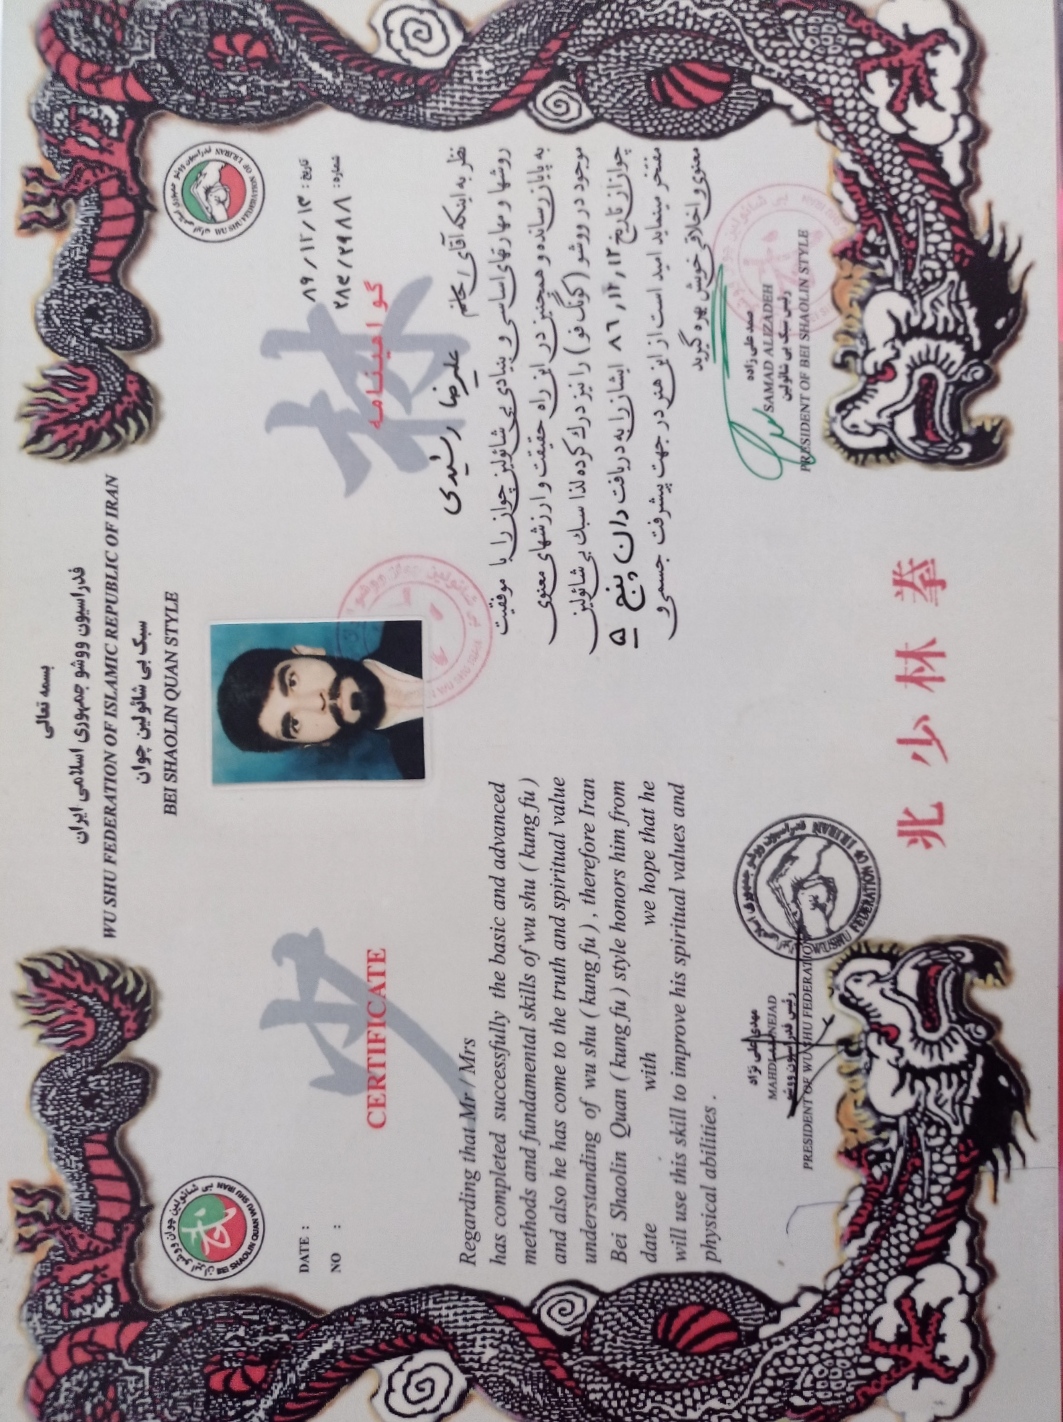 بسمه تعالی
فدراسیون ووشو جمهوری اسلامی ایران
WU SHU FEDERATION OF ISLAMIC REPUBLIC OF IRAN
سبک بی شائولین چوان
BEI SHAOLIN QUAN STYLE
DATE :
NO :
少
CERTIFICATE
Regarding that Mr / Mrs
has completed successfully the basic and advanced
methods and fundamental skills of wu shu ( kung fu )
and also he has come to the truth and spiritual value
understanding of wu shu ( kung fu ) , therefore Iran
Bei Shaolin Quan ( kung fu ) style honors him from
date with we hope that he
will use this skill to improve his spiritual values and
physical abilities .
تاریخ : ۸۹/۱۲/۱۳
شماره :
林
گواهینامه
نظر به اینکه آقای / خانم علیرضا رشیدی
روشها و مهارتهای اساسی و بنیادی بی شائولین چوان را با موفقیت
به پایان رسانده و همچنین در این راه حقیقت و ارزشهای معنوی
موجود در ووشو ( کونگ فو ) را نیز درک کرده لذا سبک بی شائولین
چوان از تاریخ ۸۶/۱۲/۱۳ ایشان را به دریافت دان پنج ۵
مفتخر مینماید امید است از این هنر در جهت پیشرفت جسمی و
معنوی و اخلاقی خویش بهره گیرید
مهدی علی نژاد
رئیس فدراسیون ووشو
PRESIDENT OF WU SHU FEDERATION
صمد علی زاده
SAMAD ALIZADEH
رئیس سبک بی شائولین
PRESIDENT OF BEI SHAOLIN STYLE
北少林拳